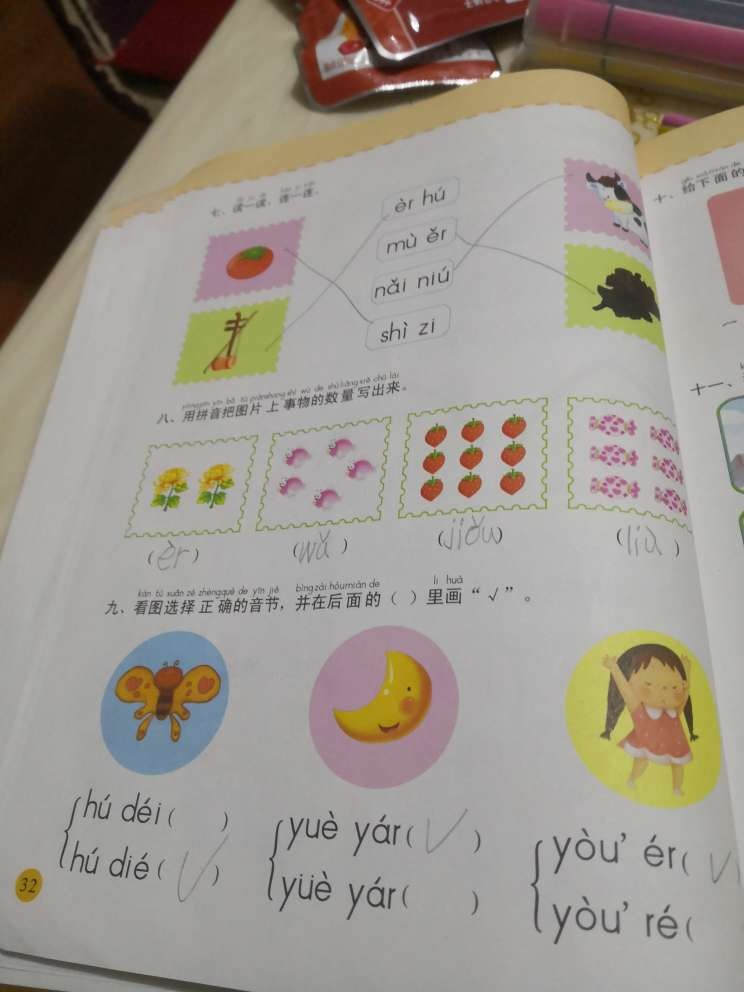 七、读一读，连一连。
èr hú
mù ěr
nǎi niú
shì zi
yòngpīn yīn bǎ tú piànshang shì wù de shùliàng xiě chū lái
八、用拼音把图片上事物的数量写出来。
(èr)
(wǔ)
(jiǒu)
(liù)
kàn tú xuǎn zé zhèngquè de yīn jié bìngzài hòumiàn de lǐ huà
九、看图选择正确的音节，并在后面的（ ）里画“√”。
hú déi ( )
hú dié (√)
yuè yár (√)
yüè yár ( )
yòu' ér (√
yòu' ré (
32
十、给下面的
十一、